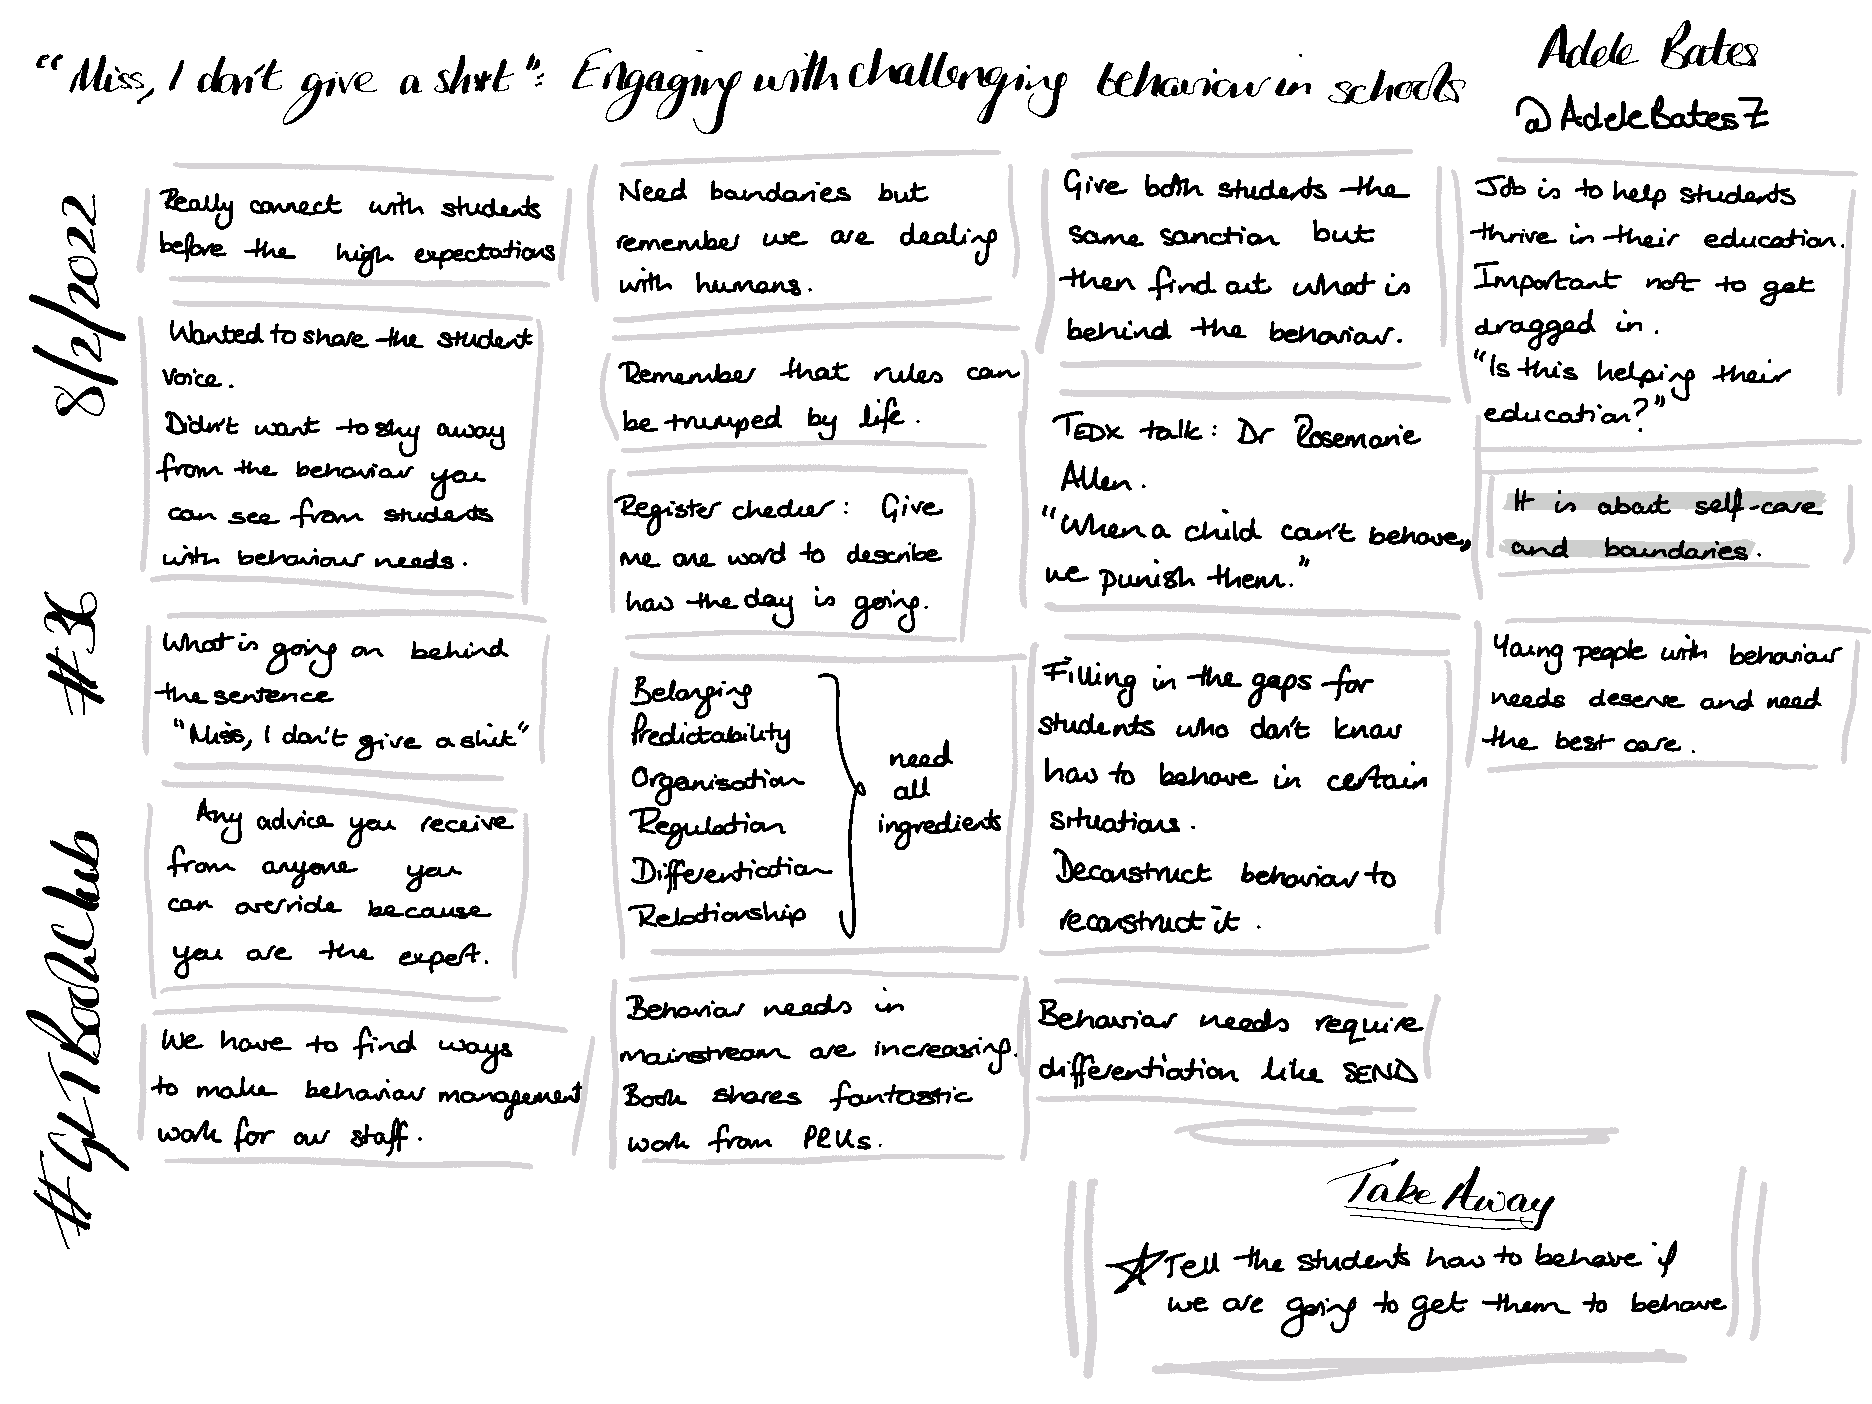 "Miss, I don't give a sh*t": Engaging with challenging behaviour in schools
Adele Bates
@AdeleBatesZ
8/2/2022
#36
#GLTBookClub
Really connect with students
before the high expectations
Wanted to share the student
voice.
Didn't want to shy away
from the behaviour you
can see from students
with behaviour needs.
What is going on behind
the sentence
"Miss, I don't give a shit"
Any advice you receive
from anyone you
can override because
you are the expert.
We have to find ways
to make behaviour management
work for our staff.
Need boundaries but
remember we are dealing
with humans.
Remember that rules can
be trumped by life.
Register checker: Give
me one word to describe
how the day is going.
Belonging
Predictability
Organisation
Regulation
Differentiation
Relationship
need
all
ingredients
Behaviour needs in
mainstream are increasing.
Book shares fantastic
work from PRUs.
Give both students the
same sanction but
then find out what is
behind the behaviour.
TEDx talk: Dr Rosemarie
Allen.
"When a child can't behave,
we punish them."
Filling in the gaps for
students who don't know
how to behave in certain
situations.
Deconstruct behaviour to
reconstruct it.
Behaviour needs require
differentiation like SEND
Job is to help students
thrive in their education.
Important not to get
dragged in.
"Is this helping their
education?"
It is about self-care
and boundaries.
Young people with behaviour
needs deserve and need
the best care.
Take Away
Tell the students how to behave if
we are going to get them to behave